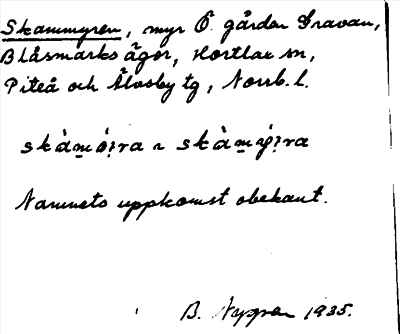 Skammyren, myr Ö. gården Gravan,
Blåsmarks ägor, Hortlax sn,
Piteå och Älvsby tg, Norrb. l.
skàmọ́ira ~ skàmýira
Namnets uppkomst obekant.
B. Nygren 1935.